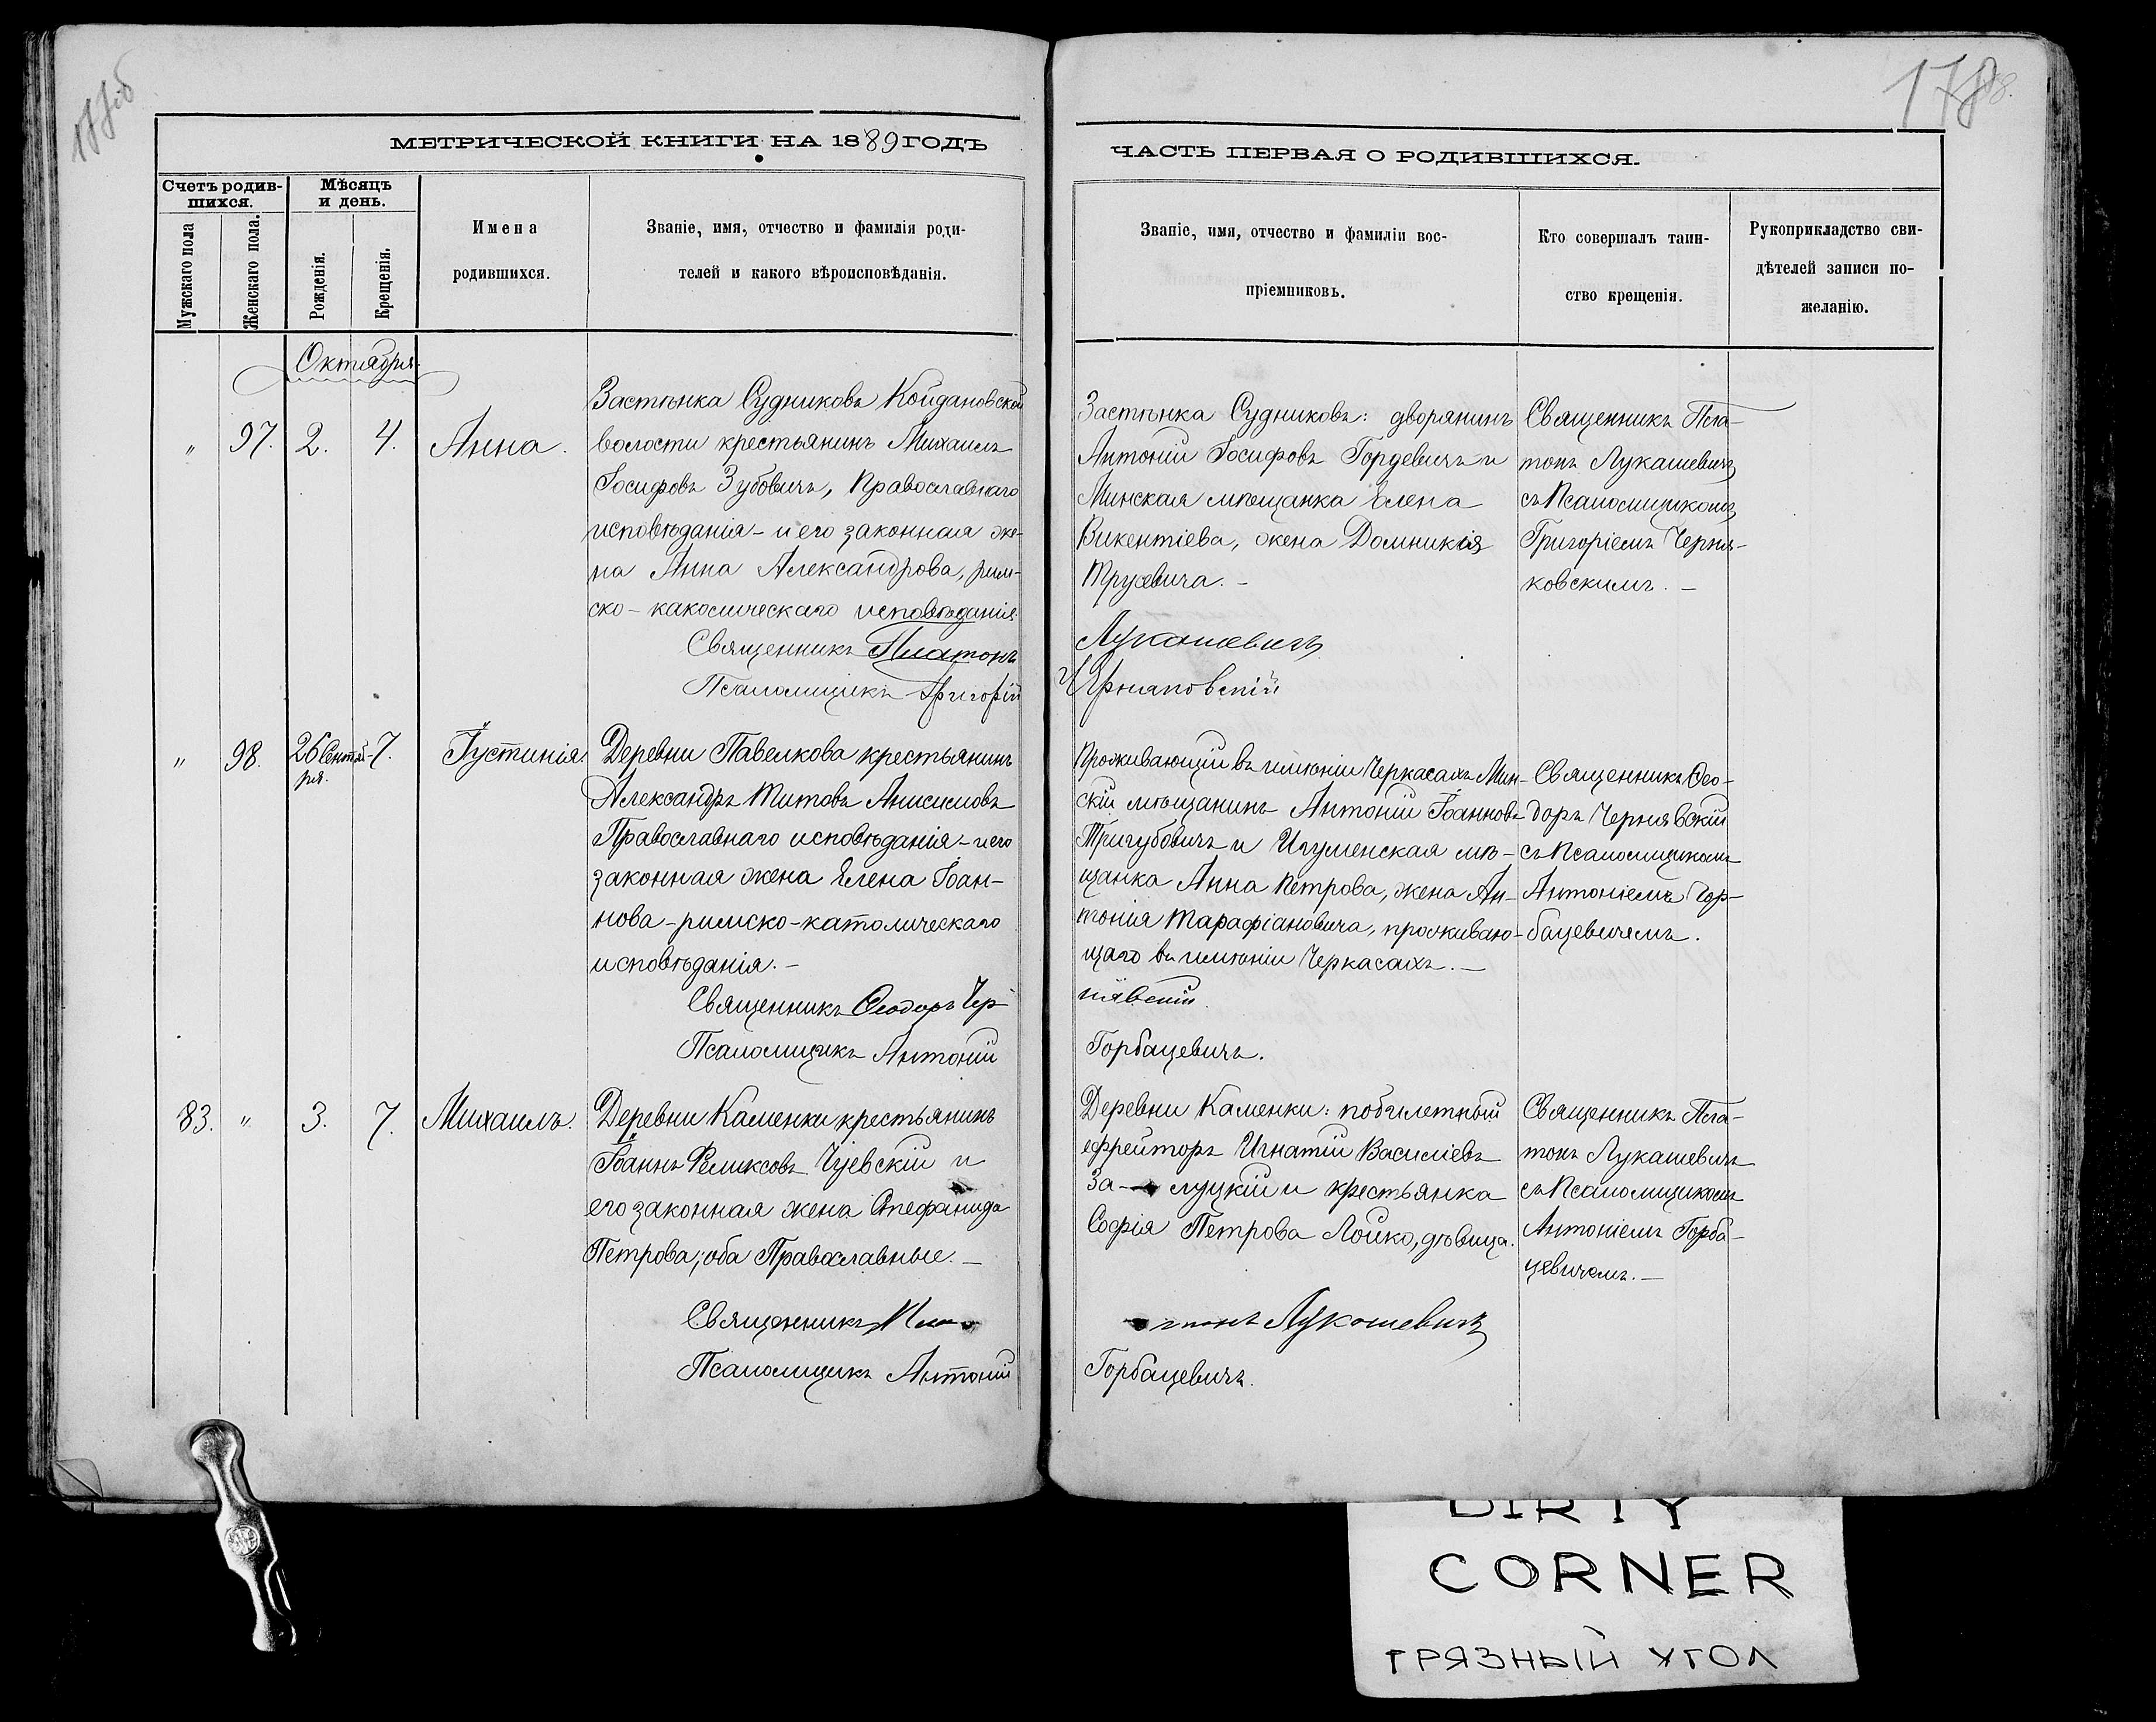 178
МЕТРИЧЕСКОЙ КНИГИ НА 1889 ГОДЪ
Счетъ родив-
шихся.
Мѣсяцъ
и день.
Мужскаго пола
Женскаго пола.
Рожденія.
Крещенія.
Имена
родившихся.
Званіе, имя, отчество и фамилія роди-
телей и какого вѣроисповѣданія.
Октября
" 97. 2. 4. Анна.
Застѣнка Судниковъ Койдановской
волости крестьянинъ Михаилъ
Іосифовъ Зубовичъ, Православнаго
исповѣданія - и его законная же-
на Анна Александрова, рим-
ско-каколическаго исповѣданія
Священникъ Платонъ
Псаломщикъ Григорій
" 98. 26 Сентяб-
ря. 7. Іустинія.
Деревни Павелкова крестьянинъ
Александръ Титовъ Анисимовъ
Православнаго исповѣданія - и его
законная жена Елена Іоан-
нова - римско-католическаго
исповѣданія. -
Священникъ Ѳеодоръ Чер-
Псаломщикъ Антоній
83. " 3. 7. Михаилъ.
Деревни Каменки крестьянинъ
Іоаннъ Феликсовъ Чуевскій и
его законная жена Стефанида
Петрова; оба Православные. -
Священникъ Пла
Псаломщикъ Антоній
ЧАСТЬ ПЕРВАЯ О РОДИВШИХСЯ.
Званіе, имя, отчество и фамиліи вос-
пріемниковъ.
Кто совершалъ таин-
ство крещенія.
Рукоприкладство сви-
дѣтелей записи по-
желанію.
Застѣнка Судниковъ: дворянинъ
Антоній Іосифовъ Гордевичъ и
Минская мѣщанка Елена
Викентіева, жена Доминикія
Трусевича. -
Лукашевичъ
Чернаковскій
Священникъ Пла-
тонъ Лукашевичъ
съ Псаломщикомъ
Григоріемъ Черня-
ковскимъ. -
Проживающій въ имѣніи Черкасахъ Мин-
скій мѣщанинъ Антоній Іоанновъ
Тригубовичъ и Игуменская мѣ-
щанка Анна Петрова, жена Ан-
тонія Марафіановича, проживаю-
щаго въ имѣніи Черкасахъ. -
нявскій
Горбацевичъ.
Священникъ Ѳео-
доръ Чернявскій
съ Псаломщикомъ
Антоніемъ Гор-
бацевичемъ.
Деревни Каменки: побилетный
ефрейторъ Игнатій Василіевъ
За- луцкій и крестьянка
Софія Петрова Лойко, дѣвица.
тонъ Лукашевичъ
Горбацевичъ.
Священникъ Пла-
тонъ Лукашевичъ
съ Псаломщикомъ
Антоніемъ Горба-
цевичемъ. -
DIRTY
CORNER
ГРЯЗНЫЙ УГОЛ